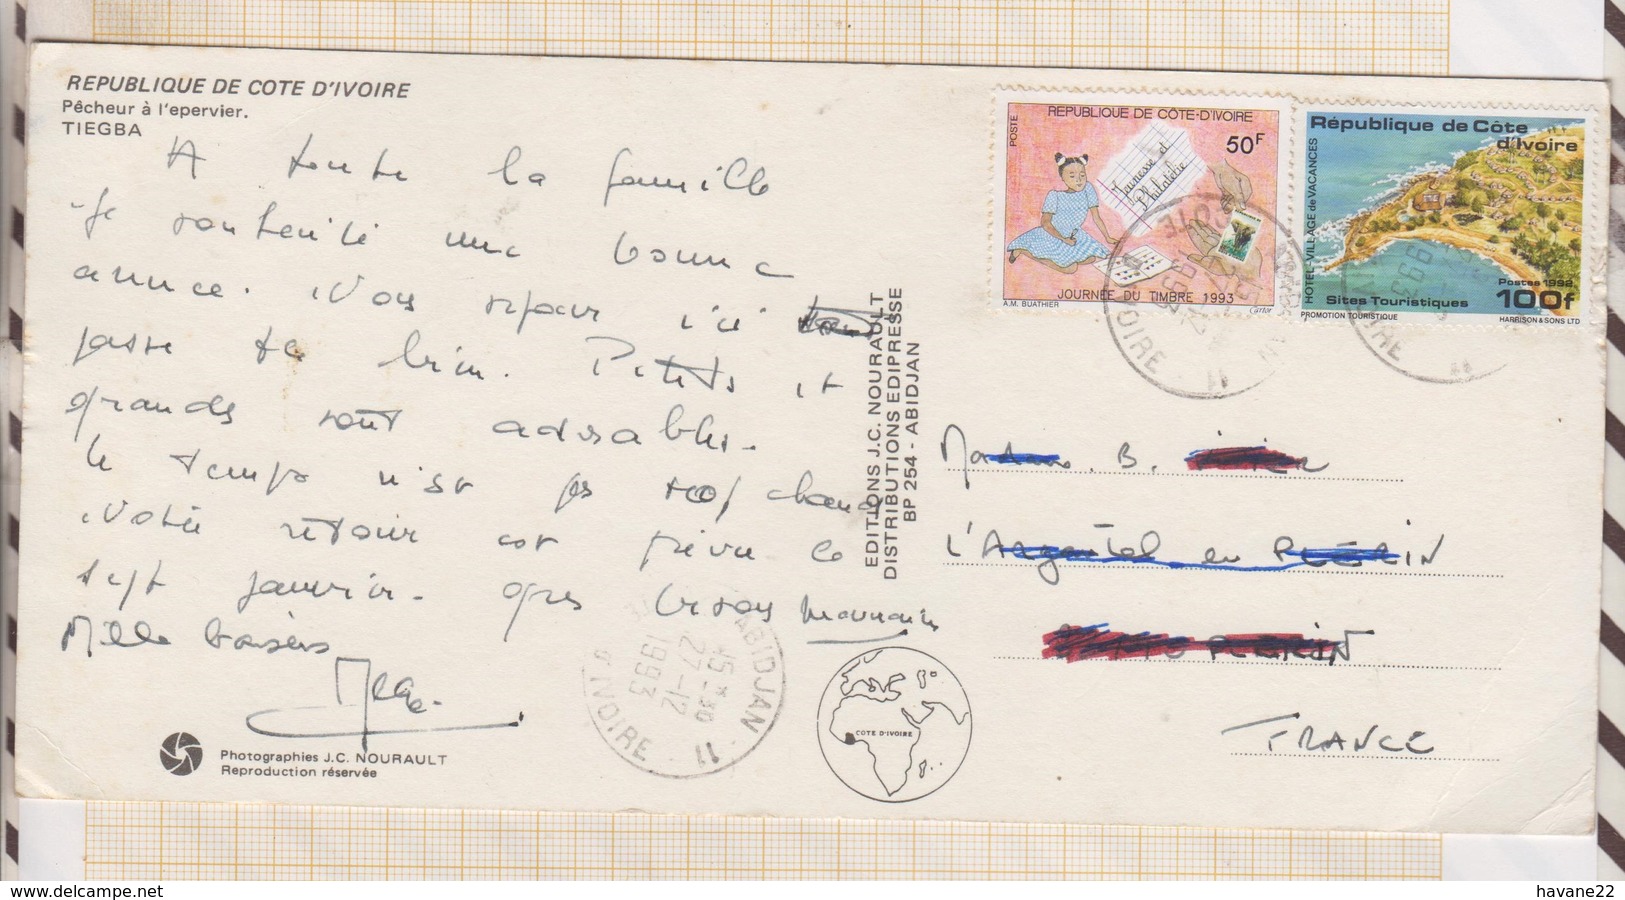 REPUBLIQUE DE COTE D'IVOIRE
Pêcheur à l'epervier.
TIEGBA
A toute la famille
Je souhaite une bonne
année. Mon séjour ici
passe très bien. Petits et
grands sont adorables.
le temps n'est pas
Notre retour est prévu le
sept janvier. gros bisous
Mille baisers
Photographies J.C. NOURAULT
Reproduction réservée
EDITIONS J.C. NOURAULT
DISTRIBUTIONS EDIPRESSE
BP 254 - ABIDJAN
ABIDJAN 11
15 H 30
27-12
1993
D'IVOIRE
COTE D'IVOIRE
REPUBLIQUE DE CÔTE-D'IVOIRE
POSTE
50F
Jeunesse et
Philatélie
JOURNÉE DU TIMBRE 1993
A.M. BUATHIER
Cartor
République de Côte
d'Ivoire
HOTEL-VILLAGE de VACANCES
Postes 1992
Sites Touristiques
100f
PROMOTION TOURISTIQUE
HARRISON & SONS LTD
B.
FRANCE
www.delcampe.net
havane22